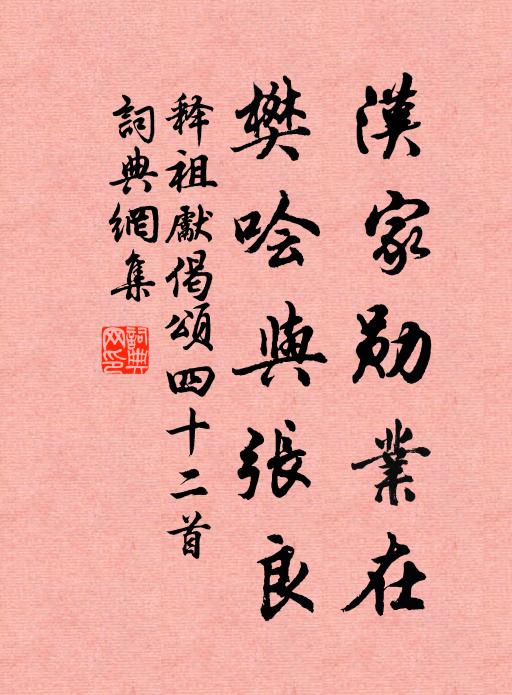 漢家勛業在
樊噲與張良
释祖獻偈頌四十二首
詞典網集
詞典
网印